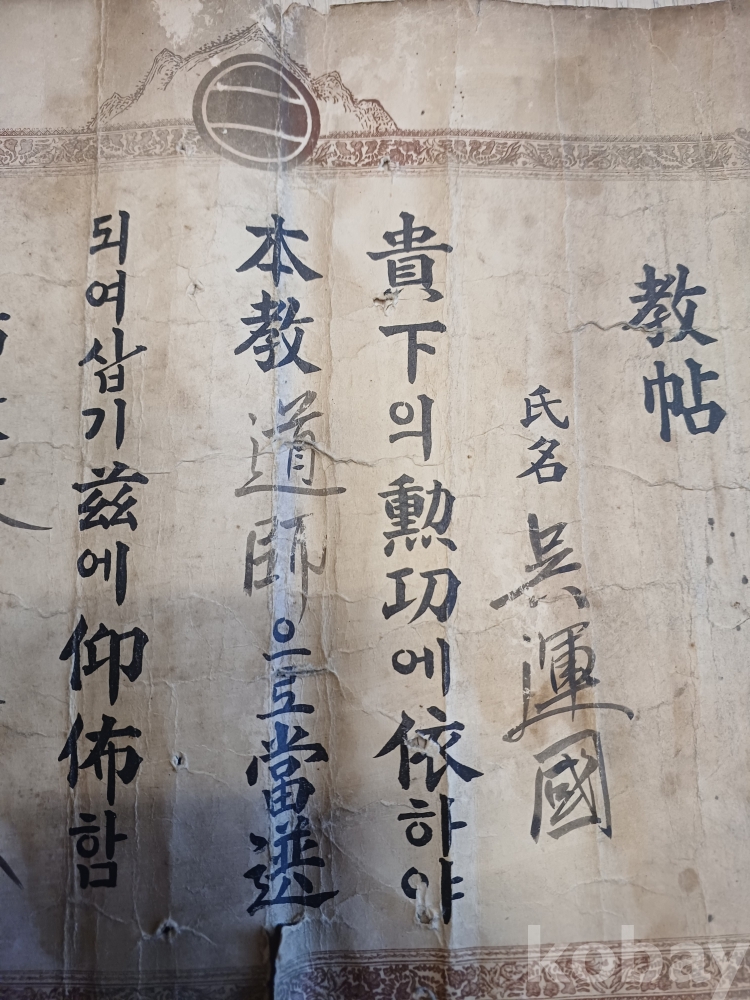 教帖
氏名 吳運國
貴下의勲功에依하야
本教道師으로當選
되여삽기玆에仰佈함
kobay